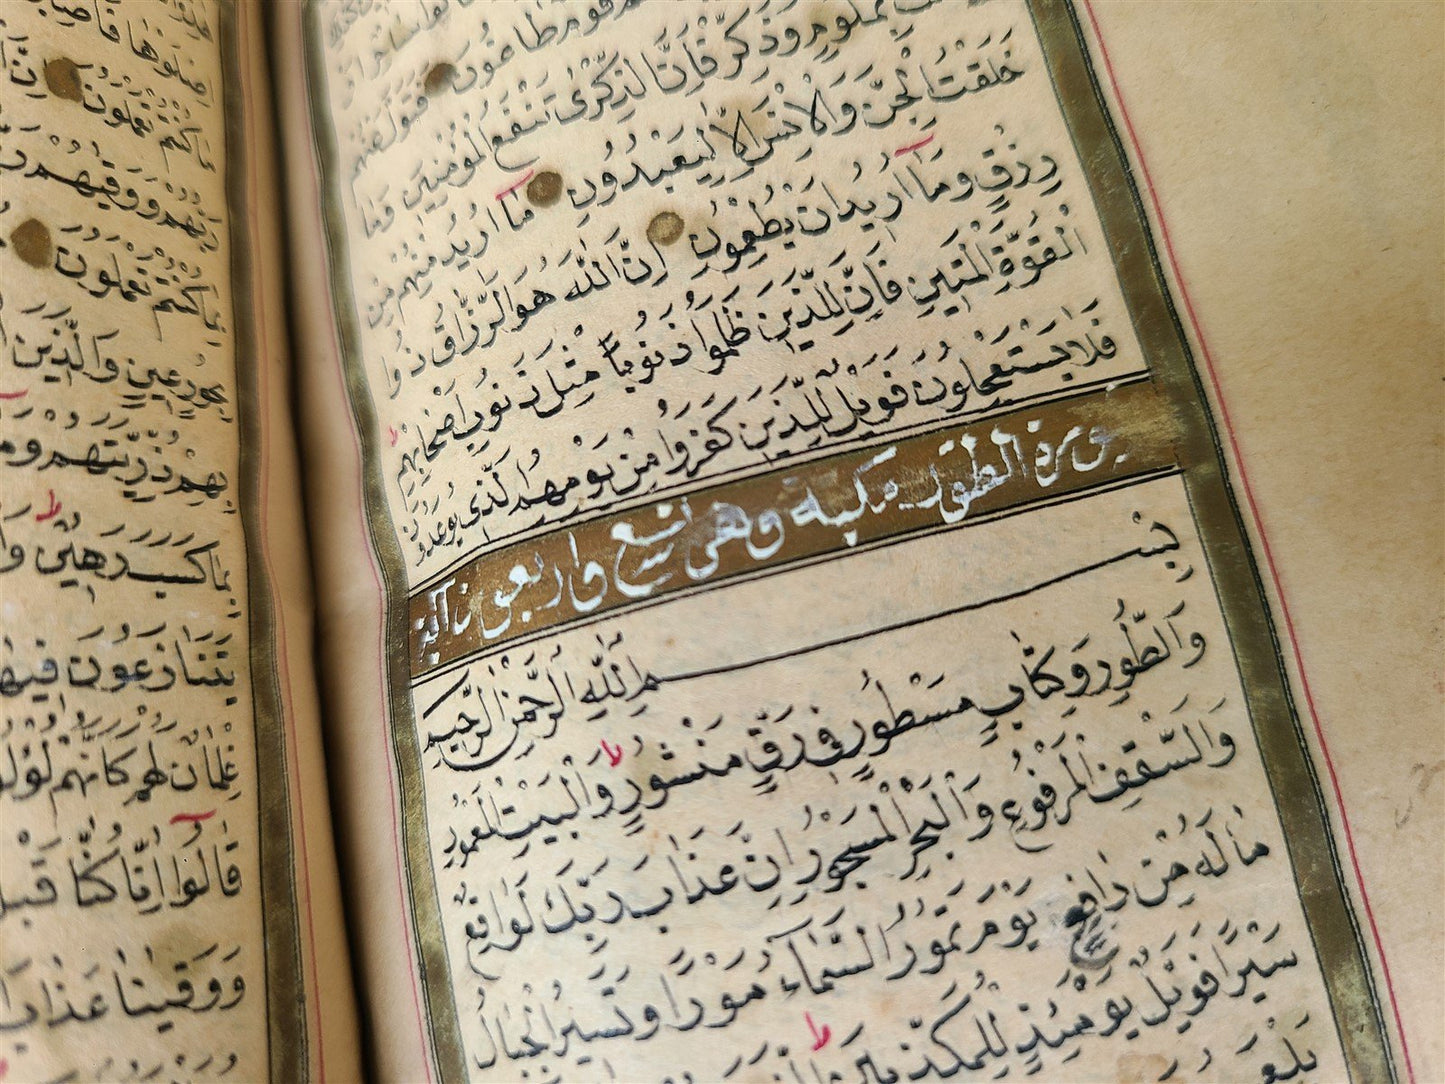 قَوْمٌ طَاغُونَ فَتَوَلَّ عَنْهُمْ
بِمَلُومٍ وَذَكِّرْ فَاِنَّ الذِّكْرٰى تَنْفَعُ الْمُؤْمِنِينَ وَمَا
خَلَقْتُ الْجِنَّ وَالْاِنْسَ اِلَّا لِيَعْبُدُونِ مَا اُرِيدُ مِنْهُمْ مِنْ
رِزْقٍ وَمَا اُرِيدُ اَنْ يُطْعِمُونِ اِنَّ اللّٰهَ هُوَ الرَّزَّاقُ ذُوا
الْقُوَّةِ الْمَتِينِ فَاِنَّ لِلَّذِينَ ظَلَمُوا ذَنُوبًا مِثْلَ ذَنُوبِ اَصْحَابِهِمْ
فَلَا يَسْتَعْجِلُونَ فَوَيْلٌ لِلَّذِينَ كَفَرُوا مِنْ يَوْمِهِمُ الَّذِي يُوعَدُونَ
سورة الطور مكية وهى تسع واربعون آية
بِسْمِ اللّٰهِ الرَّحْمٰنِ الرَّحِيمِ
وَالطُّورِ وَكِتَابٍ مَسْطُورٍ فِى رَقٍّ مَنْشُورٍ وَالْبَيْتِ الْمَعْمُورِ
وَالسَّقْفِ الْمَرْفُوعِ وَالْبَحْرِ الْمَسْجُورِ اِنَّ عَذَابَ رَبِّكَ لَوَاقِعٌ
مَا لَهُ مِنْ دَافِعٍ يَوْمَ تَمُورُ السَّمَاءُ مَوْرًا وَتَسِيرُ الْجِبَالُ
سَيْرًا فَوَيْلٌ يَوْمَئِذٍ لِلْمُكَذِّبِينَ
مَا كُنْتُمْ تَعْمَلُونَ اِنَّ
رَبُّهُمْ وَوَقٰيهُمْ
بِمَا كُنْتُمْ تَعْمَلُونَ
بِحُورٍ عِينٍ وَالَّذِينَ
بِهِمْ ذُرِّيَّتَهُمْ وَمَا
بِمَا كَسَبَ رَهِينٌ
يَتَنَازَعُونَ فِيهَا
غِلْمَانٌ لَهُمْ كَاَنَّهُمْ لُؤْلُؤٌ
قَالُوا اِنَّا كُنَّا قَبْلُ
وَوَقٰينَا عَذَابَ